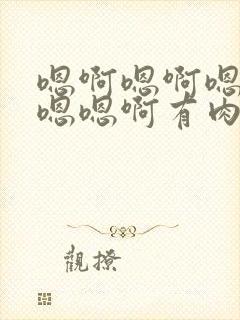 嗯啊嗯啊嗯
嗯嗯啊有肉
觀撩